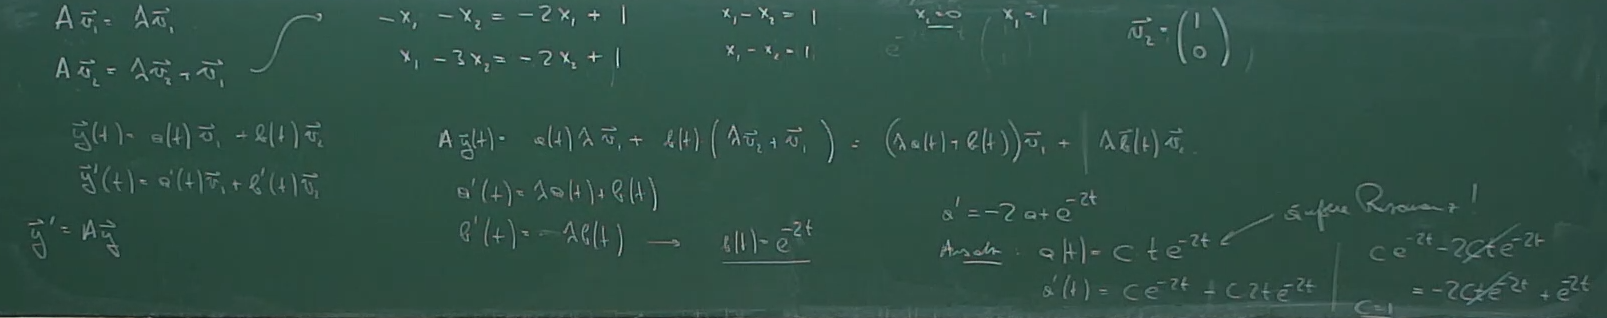 A v⃗₁ = λ v⃗₁
A v⃗₂ = λ v⃗₂ + v⃗₁
-x₁ - x₂ = -2x₁ + 1
x₁ - 3x₂ = -2x₂ + 1
x₁ - x₂ = 1
x₁ - x₂ = 1
x₂=0 x₁=1
v⃗₂ = (1 0)
y⃗(t) = a(t) v⃗₁ + b(t) v⃗₂
y⃗'(t) = a'(t) v⃗₁ + b'(t) v⃗₂
y⃗' = A y⃗
A y⃗(t) = a(t) λ v⃗₁ + b(t) (λ v⃗₂ + v⃗₁) = (λ a(t) + b(t)) v⃗₁ + λ b(t) v⃗₂
a'(t) = λ a(t) + b(t)
b'(t) = λ b(t) → b(t) = e^{-2t}
a' = -2a + e^{-2t}
äußere Resonanz!
Ansatz: a(t) = c t e^{-2t}
a'(t) = c e^{-2t} - c 2t e^{-2t}
c e^{-2t} - 2cte^{-2t}
= -2cte^{-2t} + e^{-2t}
c=1